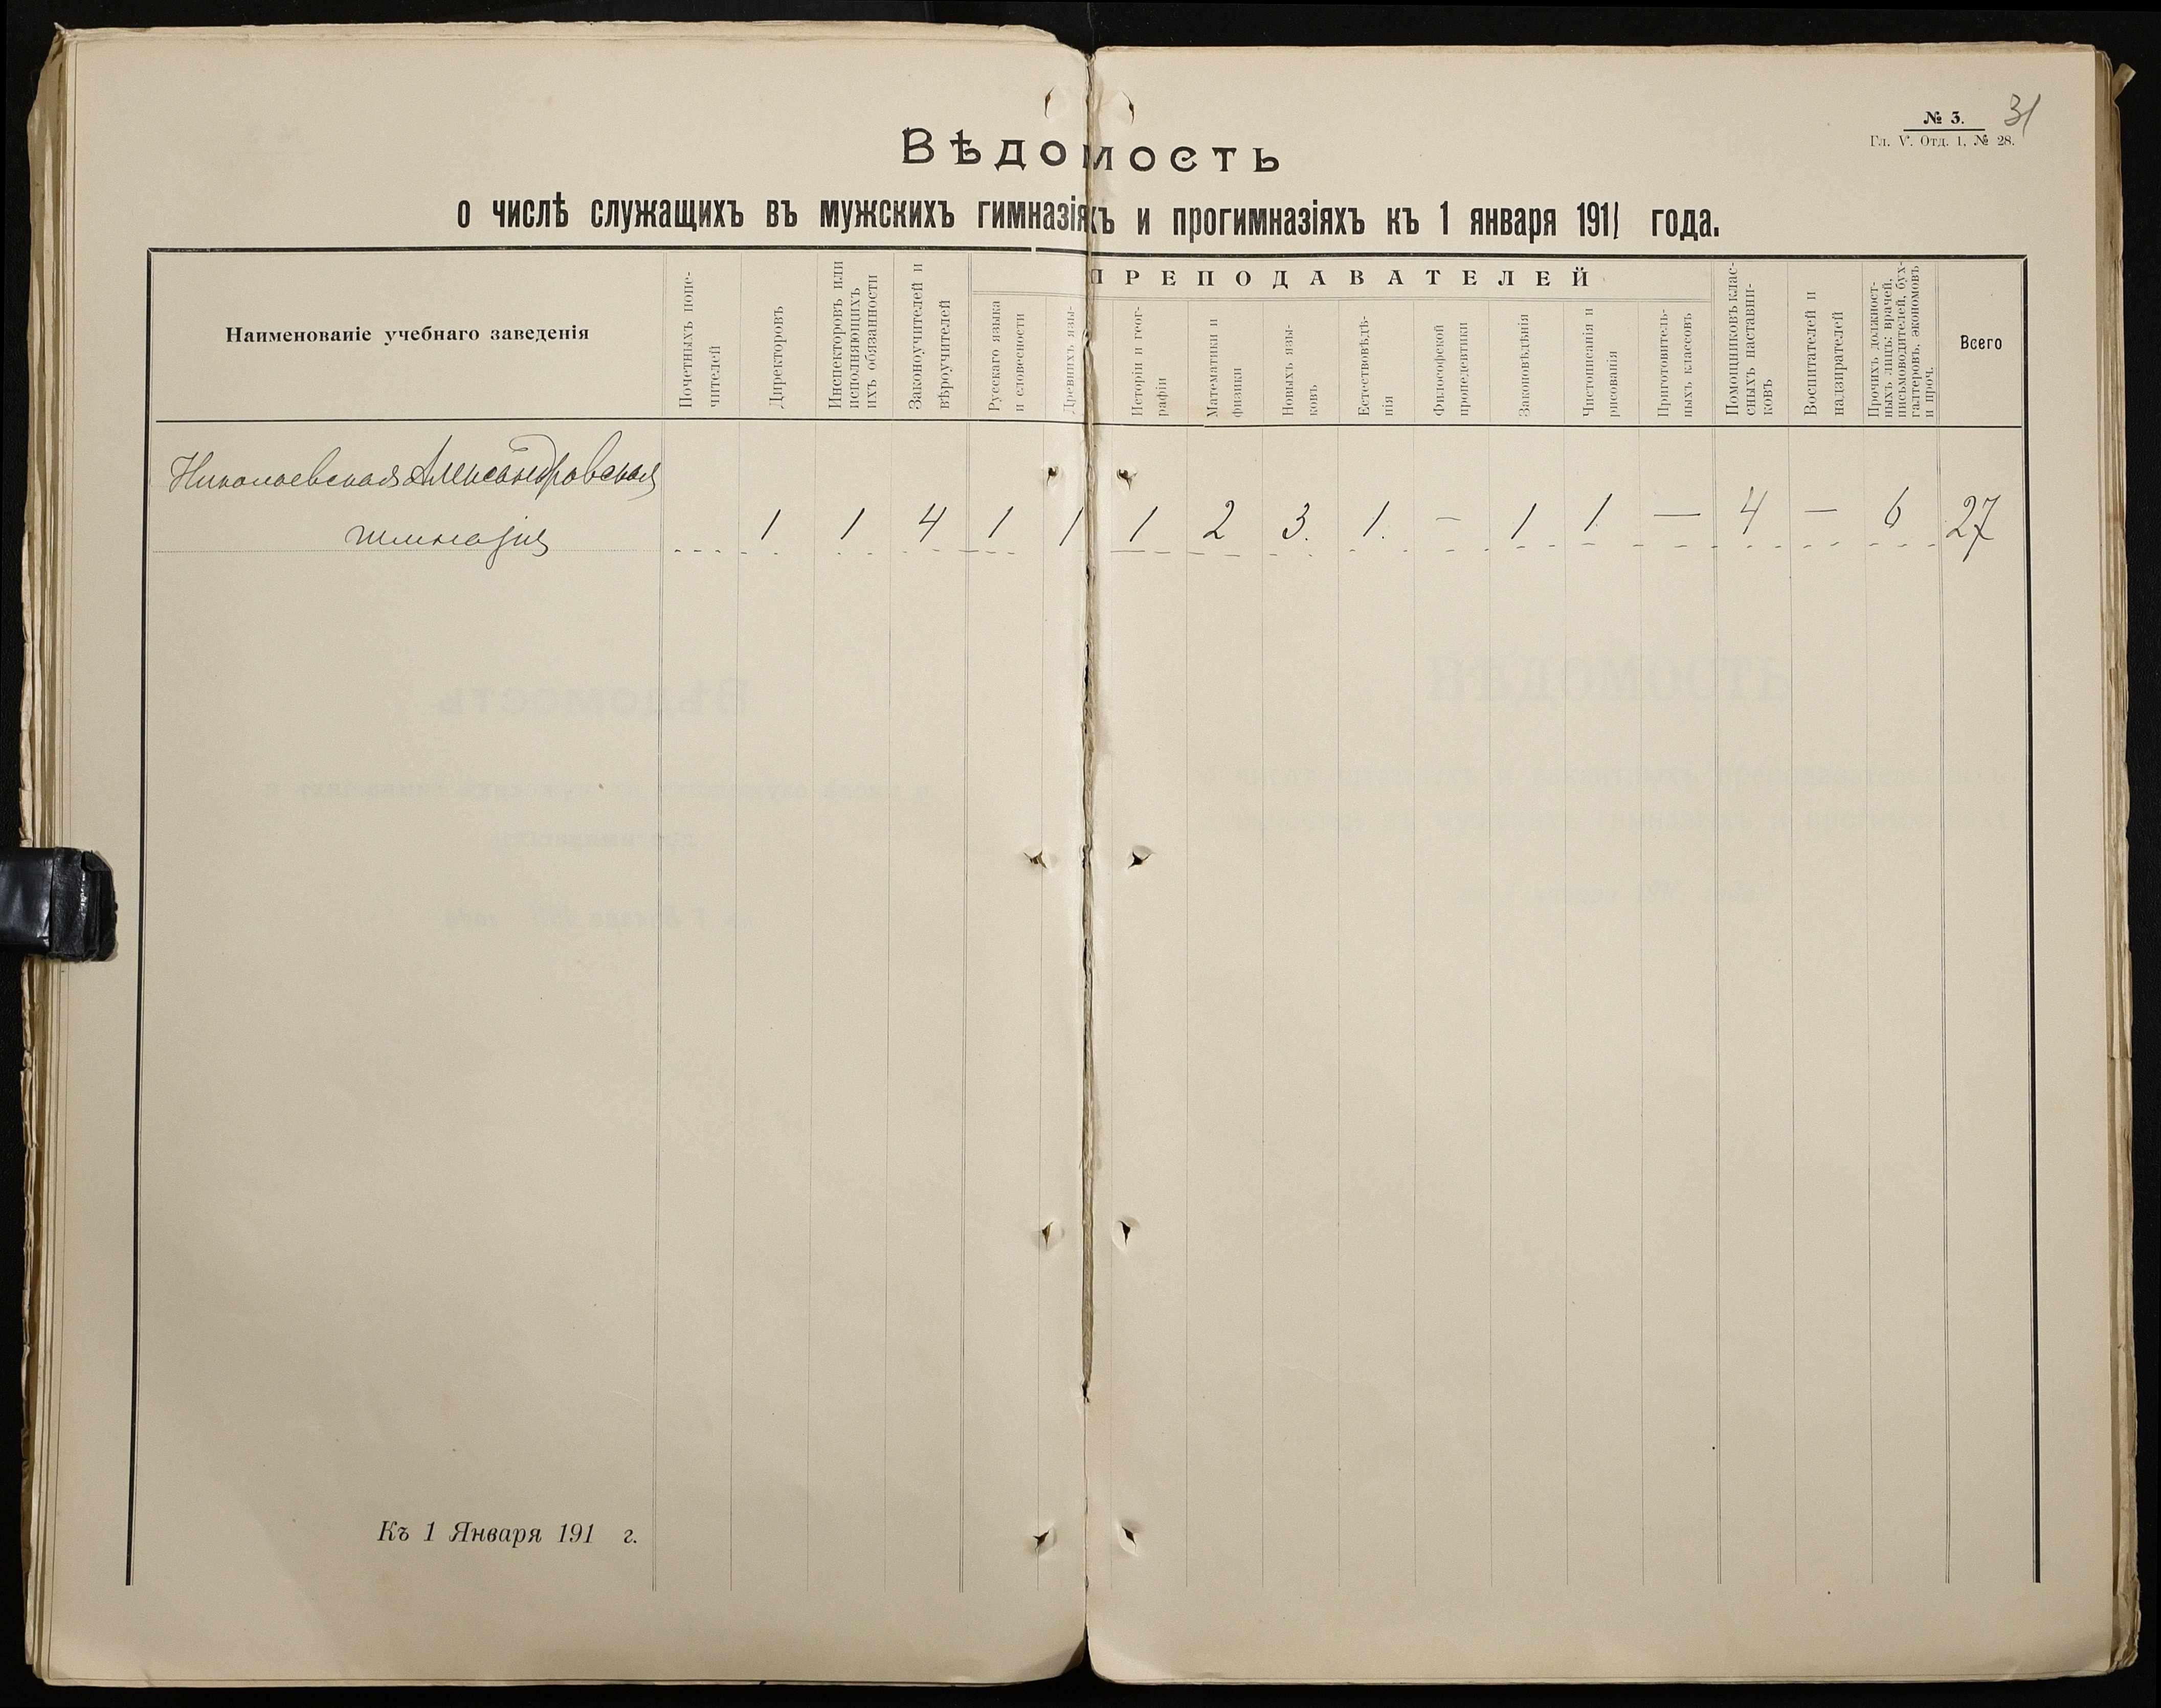 № 3.
31
Гл. V. Отд. 1, № 28.
Вѣдомость
о числѣ служащихъ въ мужскихъ гимназіяхъ и прогимназіяхъ къ 1 января 1911 года.
Наименованіе учебнаго заведенія
Почетныхъ попе-
чителей
Директоровъ
Инспекторовъ или
исполняющихъ
ихъ обязанности
Законоучителей и
вѣроучителей
ПРЕПОДАВАТЕЛЕЙ
Русскаго языка
и словесности
Древнихъ язы-
Исторіи и геог-
рафіи
Математики и
физики
Новыхъ язы-
ковъ
Естествовѣдѣ-
нія
Философской
пропедевтики
Законовѣдѣнія
Чистописанія и
рисованія
Приготовитель-
ныхъ классовъ
Помощниковъ клас-
сныхъ наставни-
ковъ
Воспитателей и
надзирателей
Прочихъ должност-
ныхъ лицъ: врачей,
письмоводителей, бух-
галтеровъ, экономовъ
и проч.
Всего
Николаевская Александровская
гимназія 1 1 4 1 1 1 2 3. 1. — 1 1. — 4 — 6 27
Къ 1 Января 191 г.